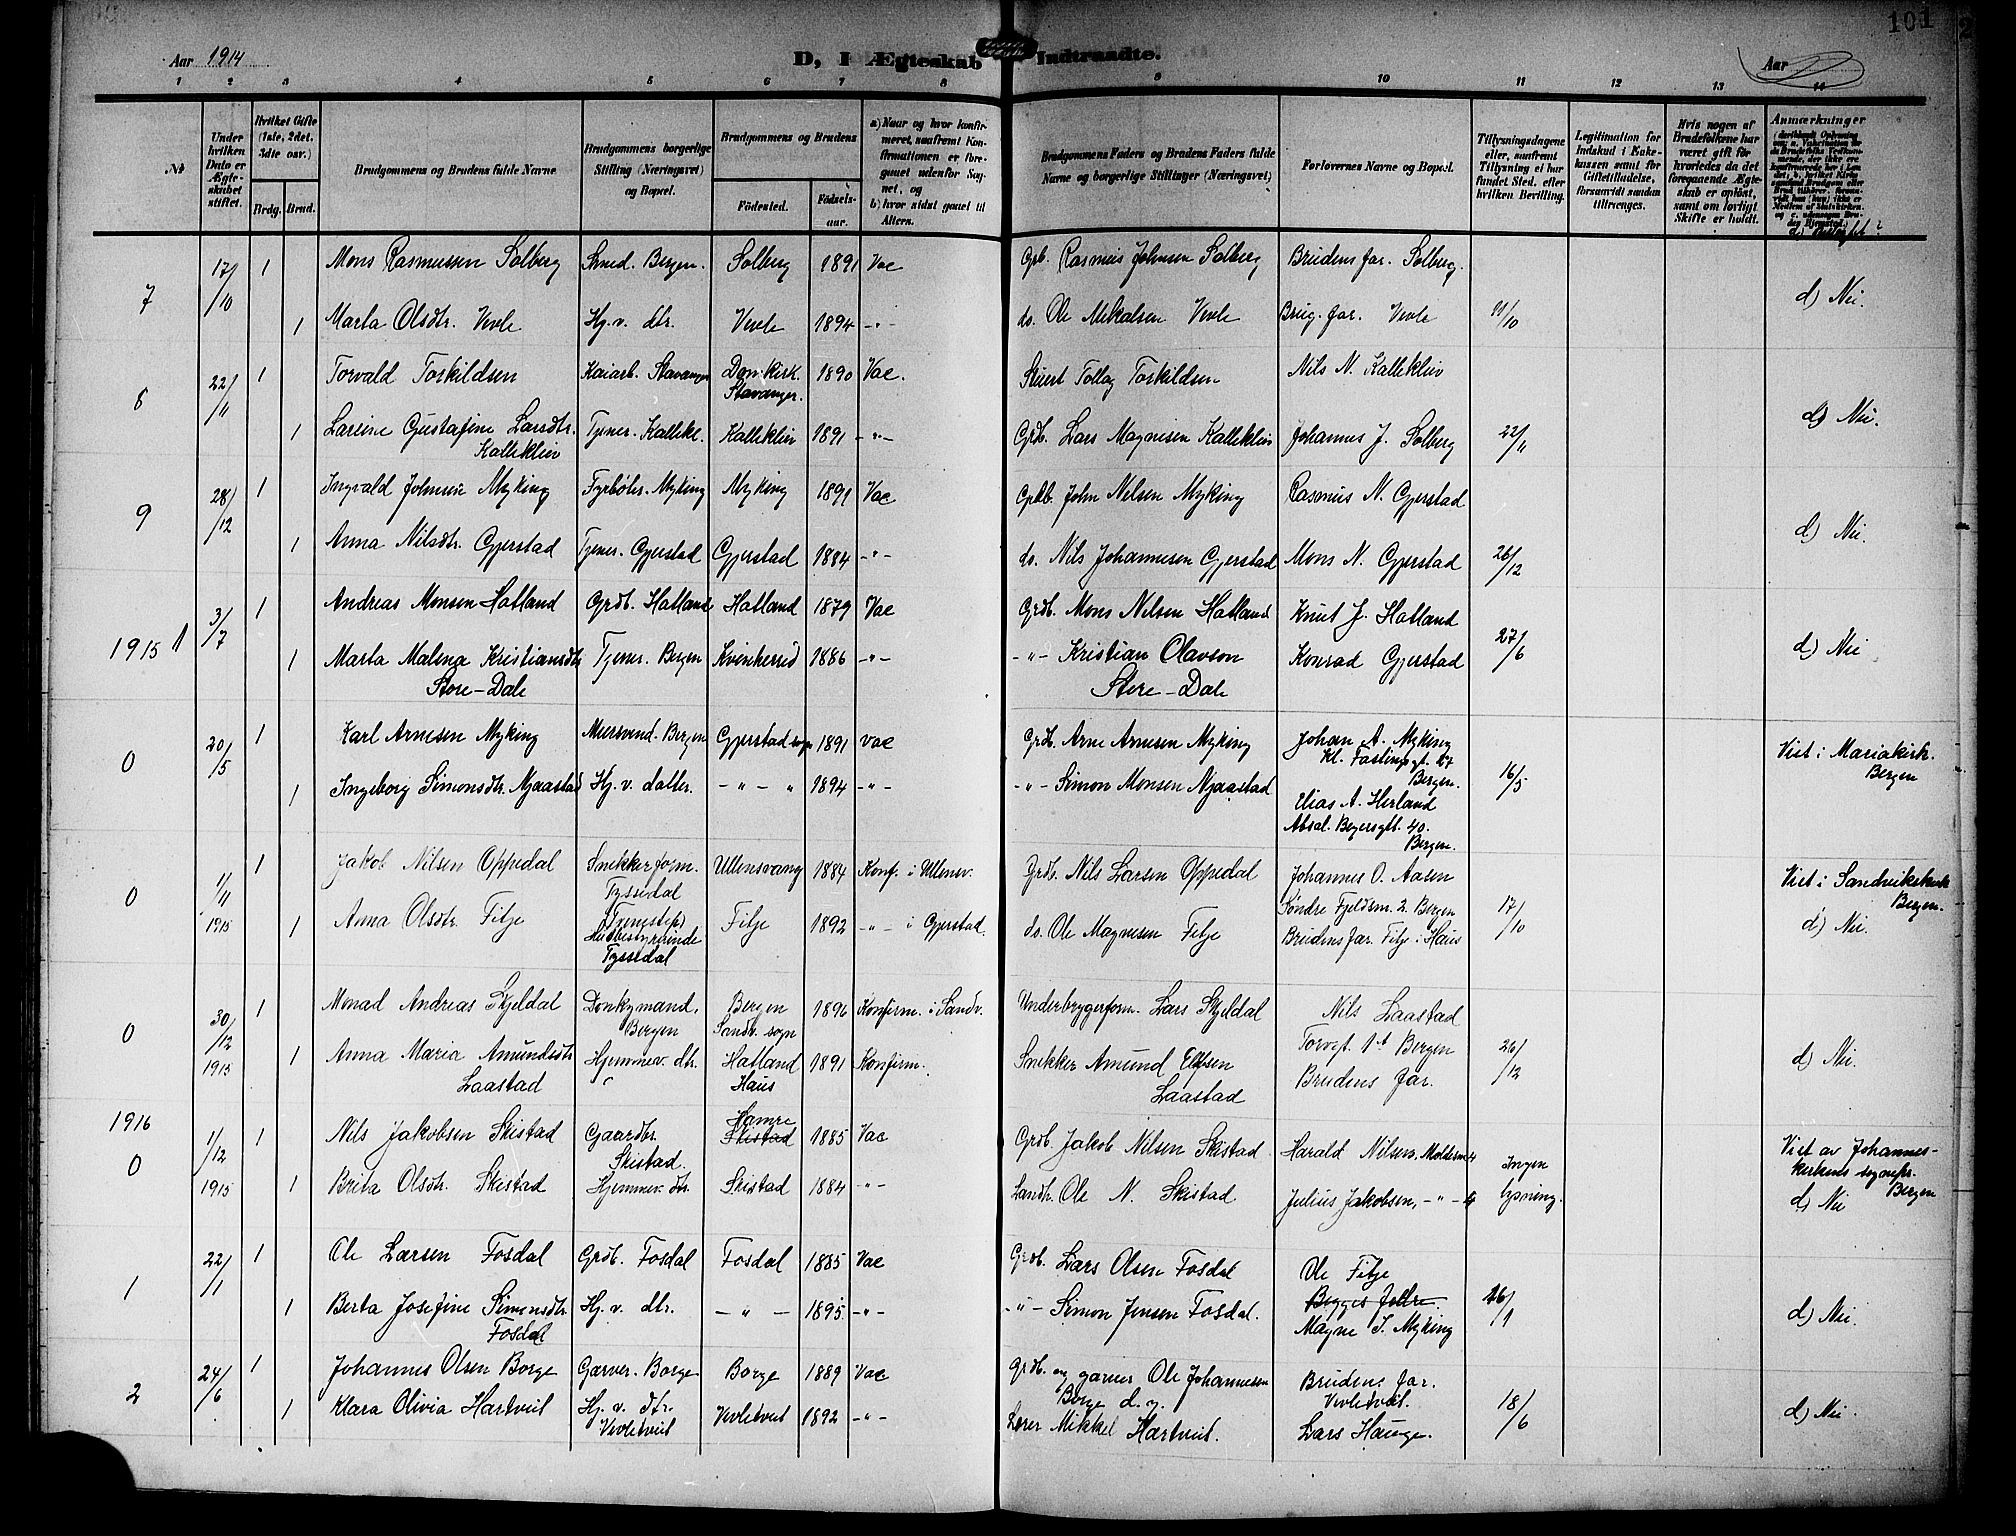 101
Aar 1914
D, I Ægteskab Indtraadte.
Aar
1 2 3 4 5 6 7 8 9 10 11 12 13 14
No
Under hvilken Dato er Ægteskabet stiftet.
Hvilket Gifte (1ste, 2det, 3die osv.)
Brdg. Brud.
Brudgommens og Brudens fulde Navne
Brudgommens borgerlige Stilling (Næringsvei) og Bopæl.
Brudgommens og Brudens
Fødested. Fødselsaar.
a) Naar og hvor konfirmeret, saafremt Konfirmationen er foregaaet udenfor Sognet, og
b) hvor sidst gaaet til Alters.
Brudgommens Faders og Brudens Faders fulde Navne og borgerlige Stillinger (Næringsvei)
Forlovernes Navne og Bopæl.
Tillysningsdagene eller, saafremt Tillysning ei har fundet Sted, efter hvilken Bevilling.
Legitimation for Indskud i Enkekassen samt for Giftetilladelse, forsaavidt saadan tiltrænges.
Hvis nogen af Brudefolkene har været gift før hvorledes da det foregaaende Ægteskab er opløst, samt om lovligt Skifte er holdt.
Anmærkninger
7 17/10 1 Mons Rasmussen Solberg Smed. Bergen. Solberg 1891 Vac Grb. Rasmus Johnsen Solberg Brudens far. Solberg.
1 Marta Olsdtr. Vevle Hj. v. dtr. Vevle 1894 -"- do. Ole Mikalsen Vevle Brug. far. Vevle 11/10 d) Nei.
8 22/11 1 Torvald Torkildsen Kaiarb. Stavanger Domkirk. Stavanger. 1890 Vac. Stuert Tollag Torkildsen Nils N. Kalleklev
1 Larine Gustafine Larsdtr. Kalleklev Tjener. Kallekl. Kalleklev 1891 -"- Grdb. Lars Magnesen Kalleklev Johannes J. Solberg 22/11 d) Nei.
9 28/12 1 Ingvald Johnsen Myking Fyrbøter. Myking Myking 1891 Vac Grdb. John Nelsen Myking Rasmus N. Gjerstad
1 Anna Nilsdtr. Gjerstad Tjener. Gjerstad Gjerstad 1884 -"- do. Nils Johannesen Gjerstad Mons N. Gjerstad 26/12 d) Nei.
1915 1 3/7 1 Andreas Monsen Hatland Grdb. Hatland Hatland 1879 Vac Grdb. Mons Nilsen Hatland Knut J. Hatland
1 Marta Malena Kristiansdtr Store-Dale Tjener. Bergen Kvinherred 1886 -"- -"- Kristian Olavson Store-Dale Konrad Gjerstad 27/6 d) Nei
0 20/5 1 Karl Arnesen Myking Murersvend. Bergen Gjerstad sogn 1891 Vac Grdb. Arne Arnesen Myking Johan A. Myking Kl. Fastingsgt. 17 Bergen. Viet i Mariakirk. Bergen
1 Ingeborg Simonsdtr. Mjaastad Hj. v. datter. -"- " 1894 -"- -"- Simon Monsen Mjaastad Elias A. Herland Absal. Beyersgt. 40. Bergen. 16/5
0 1/11 1915 1 Jakob Nilsen Oppedal Snekkerform. Tyssedal Ullensvang 1884 Konf. i Ullensv. Grdb. Nils Larsen Oppedal Johannes O. Aasen Søndre Fjeldsm. 2. Bergen Viet i Sandvikskirk Bergen.
1 Anna Olsdtr. Fitje Husbestyrerinde Tyssedal Fitje 1892 -"- i Gjerstad. do. Ole Magnesen Fitje Brudens far. Fitje i Haus 17/10 d) Nei.
0 30/12 1915 1 Monad Andreas Skjeldal Donkymand. Bergen Bergen Sandv. sogn 1896 Konfirm. i Sandv. Underbryggerform. Lars Skjeldal Nils Laastad Torvgt. 1 b Bergen
1 Anna Maria Amundsdtr Laastad Hjemmev. dtr. Hatland Haus 1891 Konfirm. Snekker Amund Elfsen Laastad Brudens far. 26/12 d) Nei.
1916
0 1/12 1915 1 Nils Jakobsen Skistad Gaardbr. Skistad. Hamre Skistad 1885 Vac Grdb. Jakob Nilsen Skistad Harald Nilsen, Ingen Viet av Johanneskirkens sognepr. Bergen
1 Brita Olsdtr. Skistad Hjemmev. dtr. Skistad 1884 -"- Landh. Ole N. Skistad Julius Jakobsen, -"- 4 lysning. d) Nei
1 22/1 1 Ole Larsen Fosdal Grdb. Fosdal Fosdal 1885 Vac Grdb. Lars Olsen Fosdal Ole Fitje
1 Berta Josefine Simonsdtr. Fosdal Hj. v. dtr. -"- 1895 -"- -"- Simon Jensen Fosdal. Begges fedre. Magne S. Myking 16/1 d) Nei.
2 24/6 1 Johannes Olsen Borge Garver. Borge Borge 1889 Vac Grdb. og garver Ole Johannesen Borge d. y. Brudens far. Vevletveit.
1 Klara Olivia Hartveit Hj. v. dtr. Vevletveit Vevletveit 1892 -"- Lærer Mikkel Hartveit. Lars Hauge. 18/6 d) Nei.